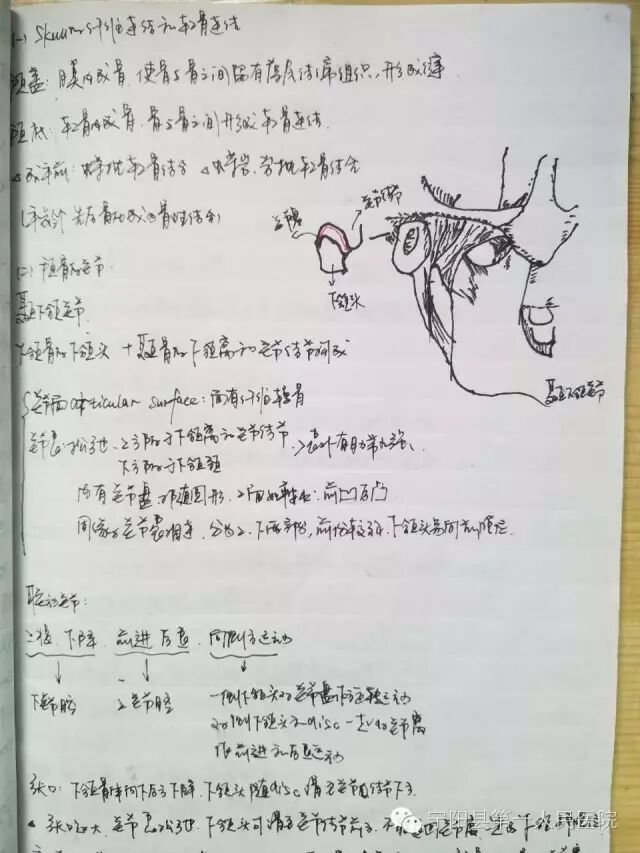 (一) Skull的纤维连结和软骨连结
颅盖: 膜内成骨, 使骨与骨之间留有薄层结缔组织, 形成缝
颅底: 软骨内成骨, 骨与骨之间形成软骨连结.
成年前: 蝶枕软骨结合 蝶岩、岩枕软骨结合
(年龄 先后骨化成为骨性结合)
(二) 颅骨的关节.
关节结节
关节盘
下颌头
颞下颌关节
下颌骨的下颌头 + 颞骨的下颌窝和关节结节构成
颞下颌关节
关节面 articular surface: 面有纤维软骨
关节囊: 松弛. 上方附于下颌窝和关节结节, 外有韧带加强
下方附于下颌颈
内有关节盘 椭圆形, 上面如鞍状: 前凹后凸
周缘与关节囊相连, 分为上、下两部分, 前份较薄, 下颌头易向前脱位
联合关节:
上提、下降 前进后退 向侧方运动
下关节腔 上关节腔 一侧下颌头的关节盘作旋转运动
对侧下颌头和disc一起向关节窝
作前进和后退运动
张口: 下颌骨体向下后方下降, 下颌头随disc滑至关节结节下方
张口过大, 关节囊松弛, 下颌头可滑至关节结节前方, 不能退回关节窝
宁阳县第一人民医院